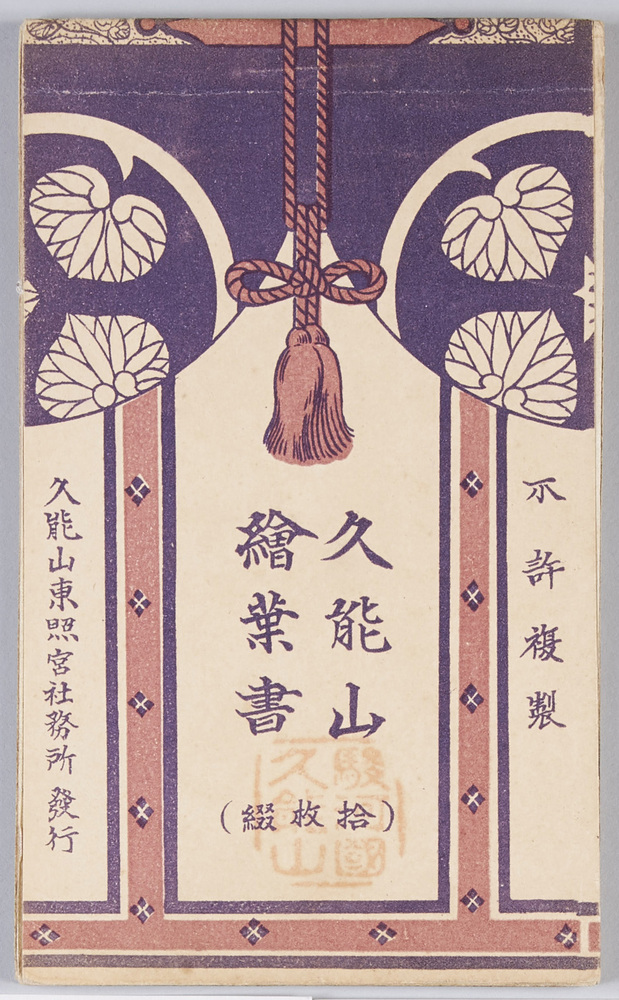 不許複製
久能山
繪葉書
(拾枚綴)
駿河國
久能山
久能山東照宮社務所 發行